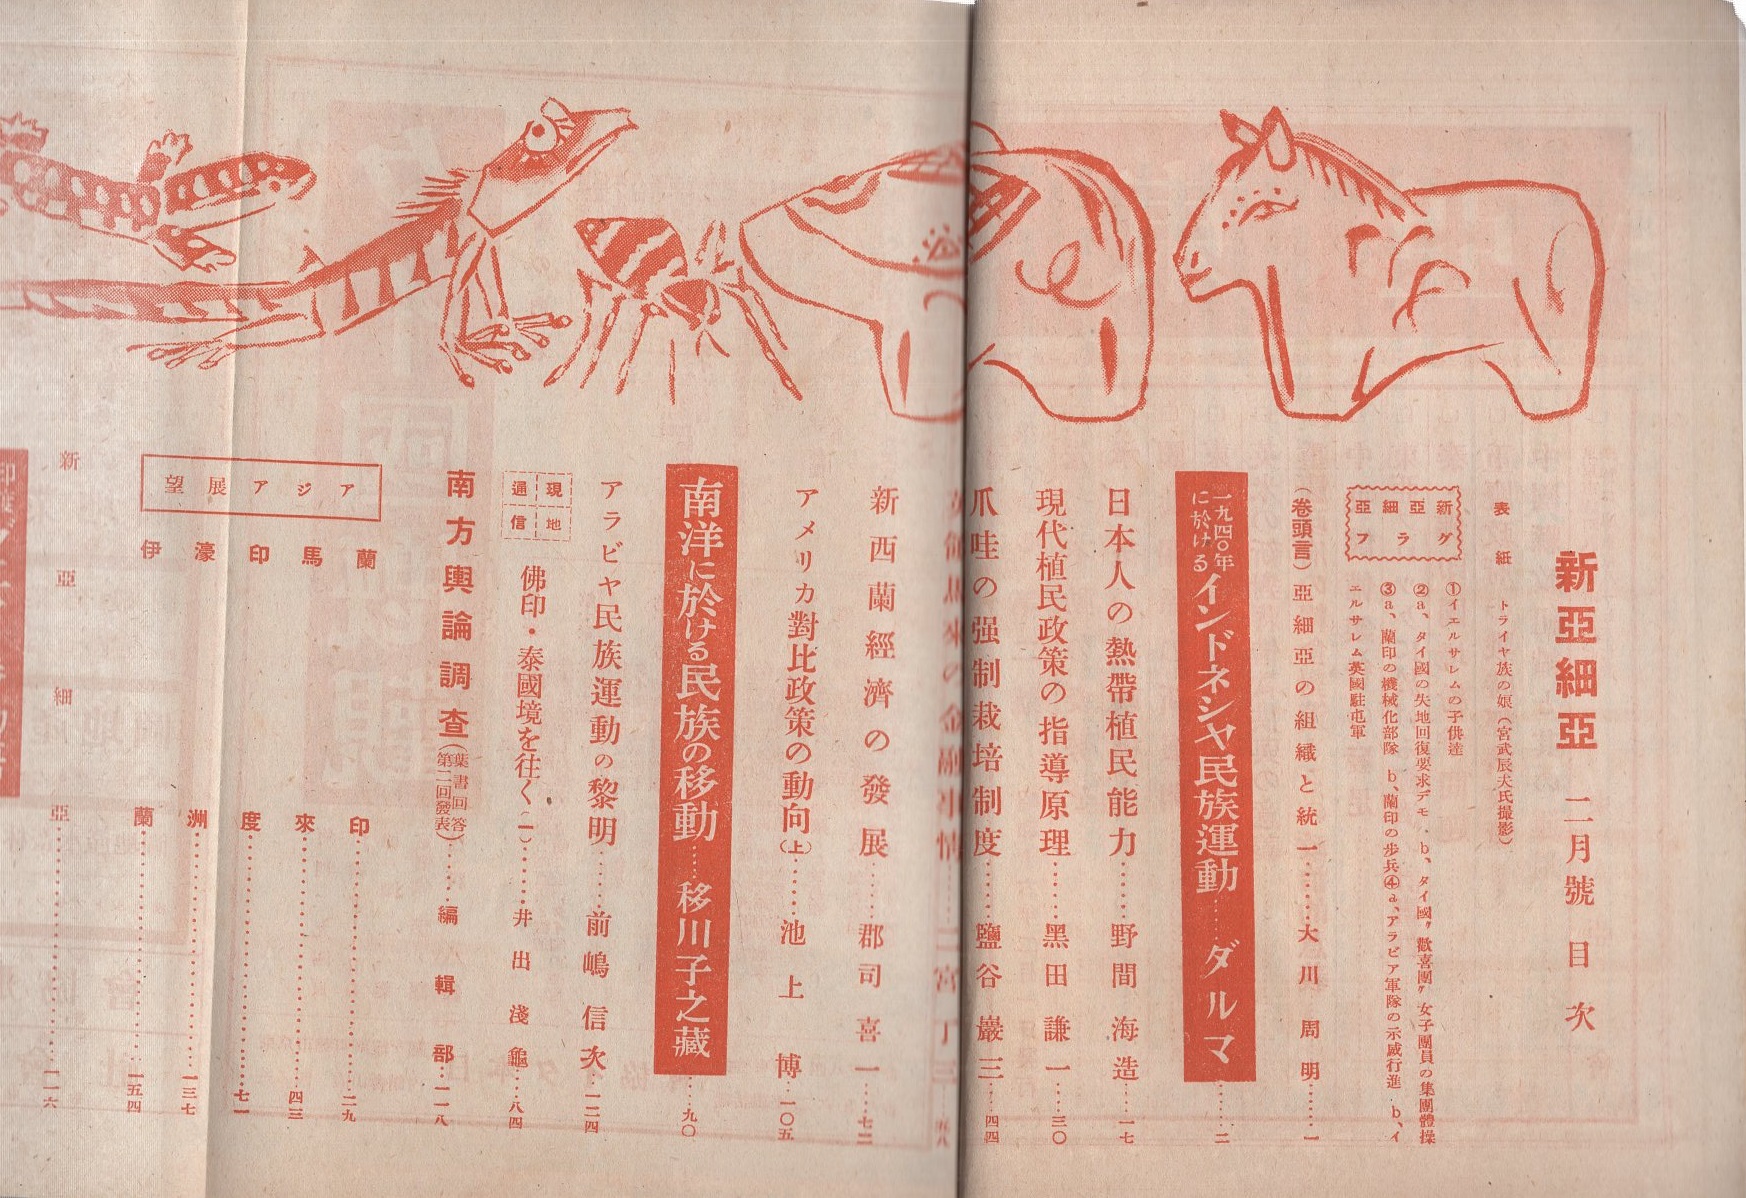 新亞細亞 二月號 目次
表紙 トライヤ族の娘(宮武辰夫氏撮影)
新亞細亞グラフ
①イエルサレムの子供達
②a、タイ國の失地回復要求デモ b、タイ國〝歡喜團〟女子團員の集團體操
③a、蘭印の機械化部隊 b、蘭印の歩兵④a、アラビア軍隊の示威行進 b、イ
エルサレム英國駐屯軍
(卷頭言)亞細亞の組織と統一……大川周明……一
一九四〇年に於けるインドネシヤ民族運動……ダルマ……二
日本人の熱帶植民能力……野間海造……一七
現代植民政策の指導原理……黑田謙一……三〇
爪哇の强制栽培制度……鹽谷巖三……四四
英領馬來の金融事情……二宮丁三……五八
新西蘭經濟の發展……郡司喜一……七二
アメリカ對比政策の動向(上)……池上博……一〇五
南洋に於ける民族の移動……移川子之藏……九〇
アラビヤ民族運動の黎明……前嶋信次……一二四
現地通信
佛印・泰國境を往く(一)……井出淺龜……八四
南方輿論調査(葉書回答第二回發表)……編輯部……一一八
アジア展望
蘭印……二九
馬來……四三
印度……七一
濠洲……一三七
伊蘭……一五四
新亞細亞……一一六